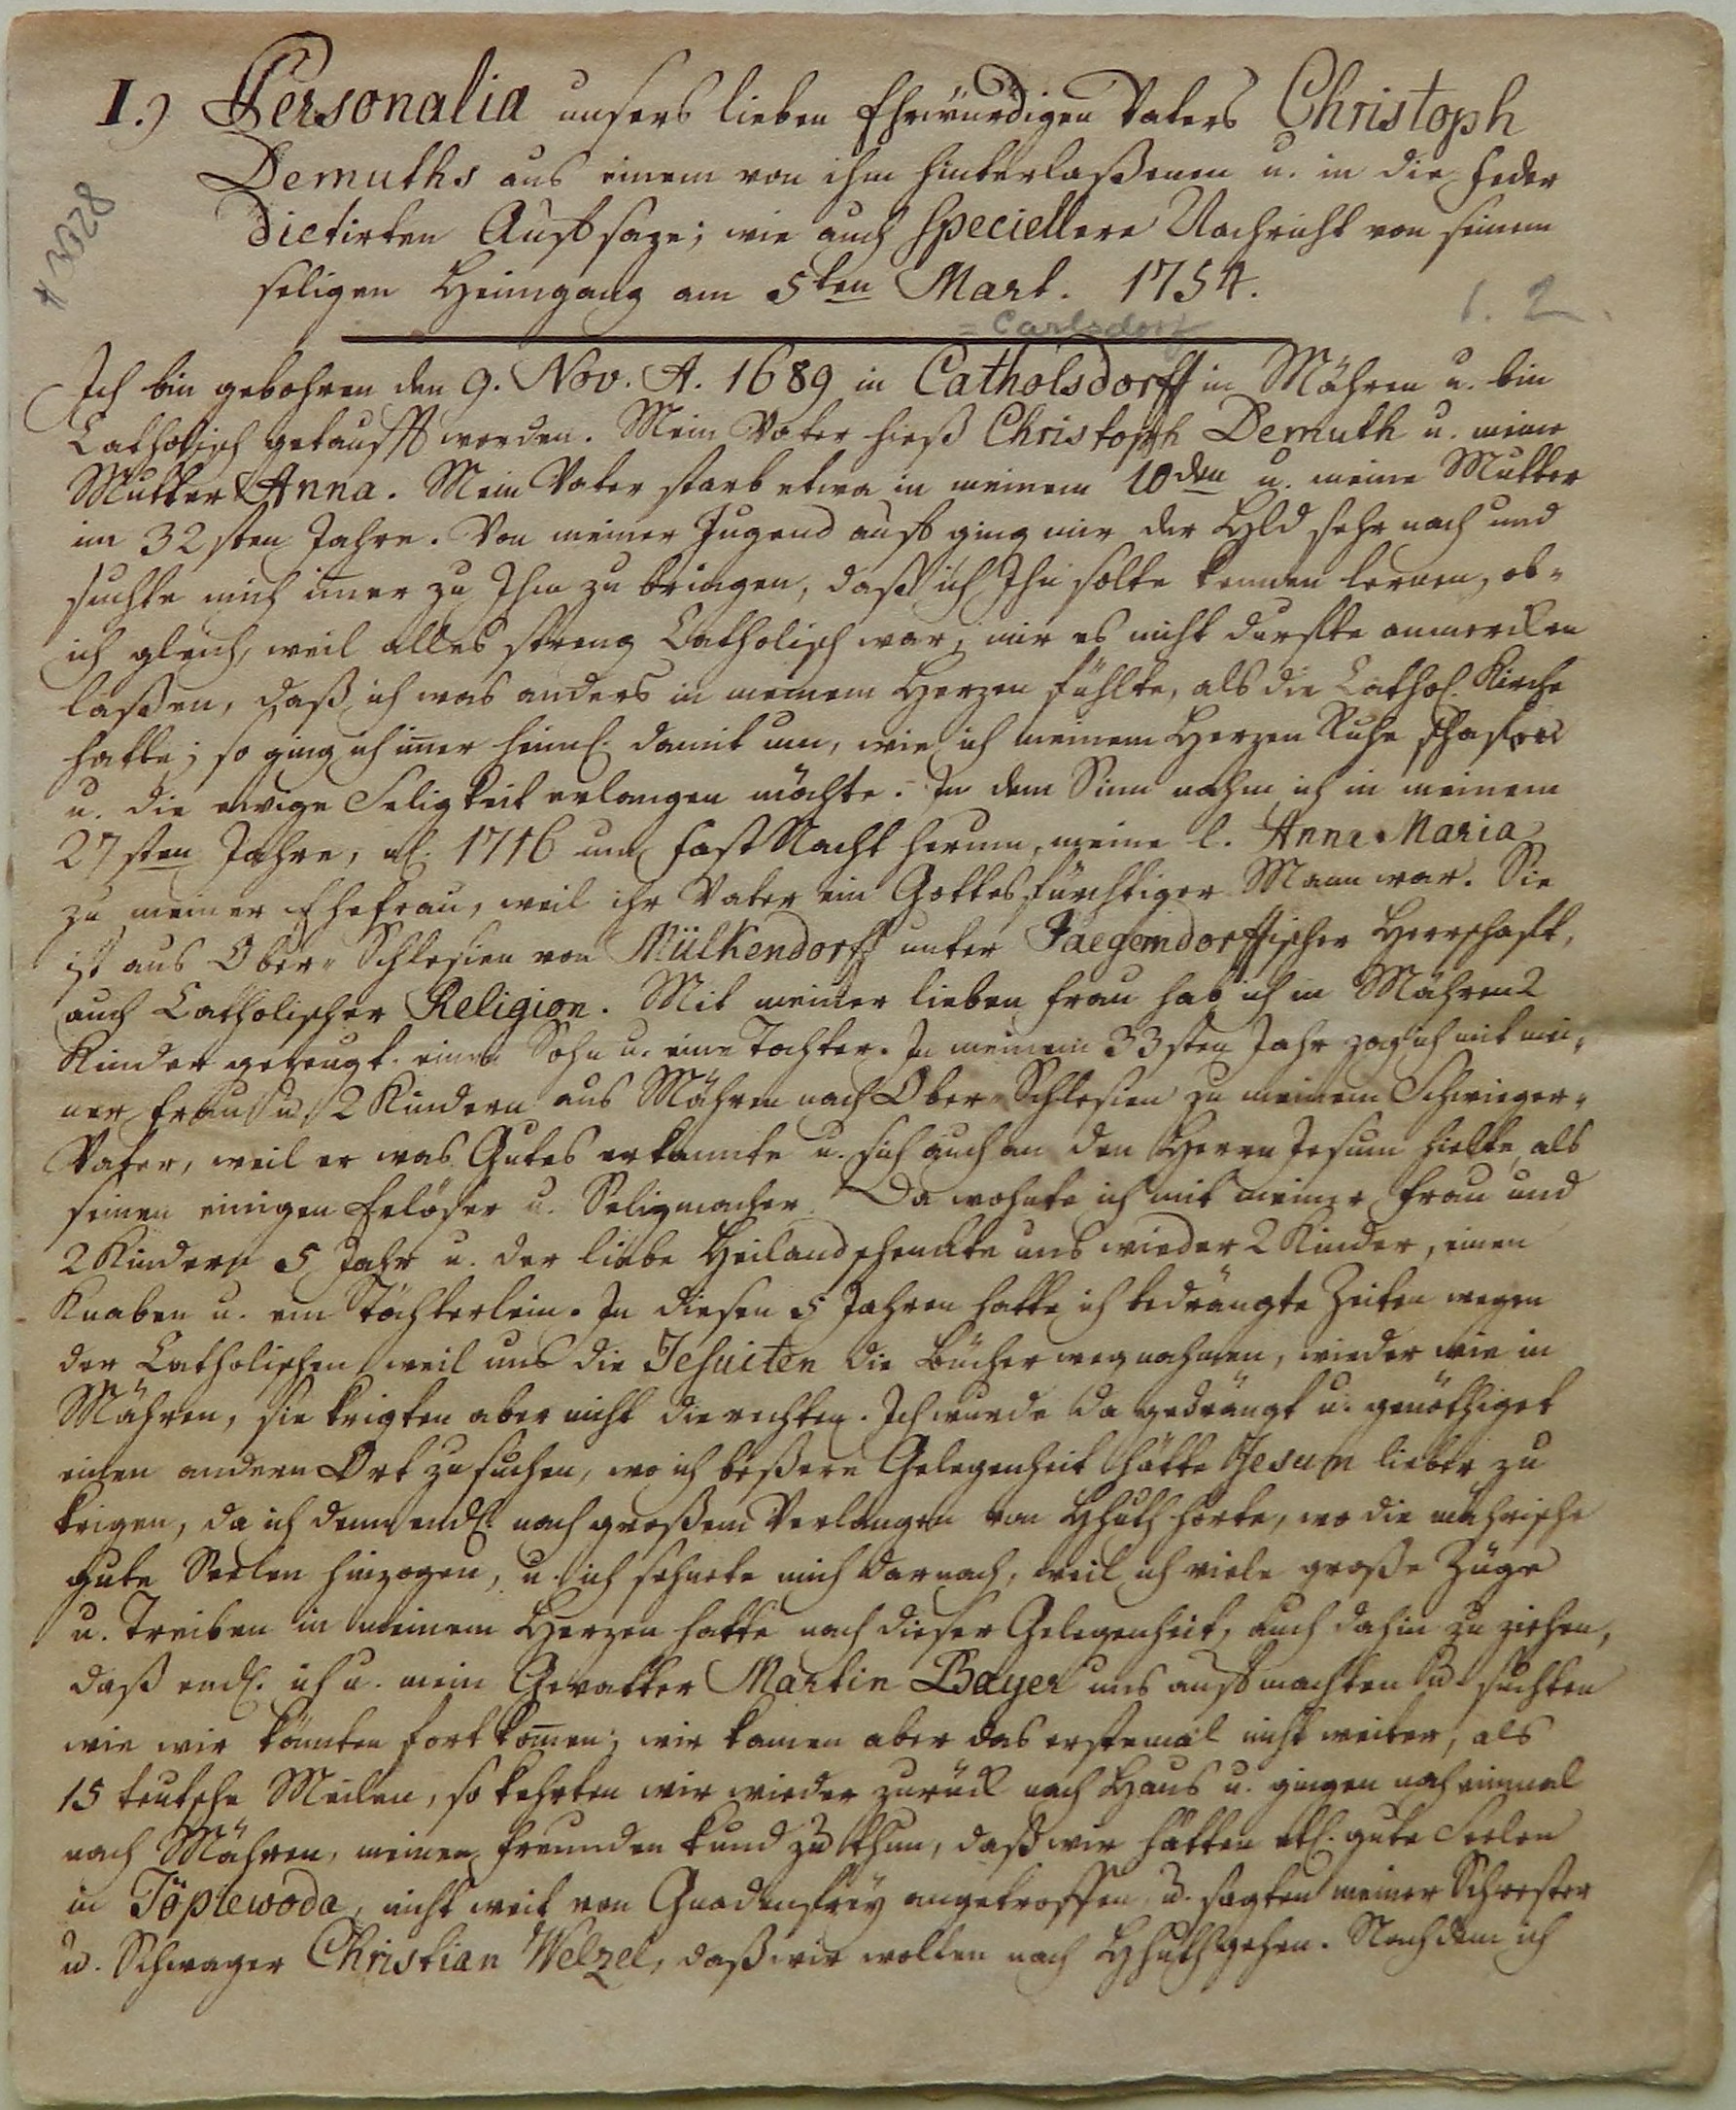 I.) Personalia unsers lieben Ehrwürdigen Vaters Christoph
Demuths aus einem von ihm hinterlaßenen u. in die Feder
dictirten Auffsaze; wie auch speciellere Nachricht von seinem
seligen Heimgang am 5ten Mart. 1754.
# 3028
1. 2.
= Carlsdorf
Ich bin gebohren den 9. Nov. A. 1689 in Catholsdorff in Mähren u. bin
Catholisch getaufft worden. Mein Vater hieß Christoph Demuth u. meine
Mutter Anna. Mein Vater starb etwa in meinem 10den u. meine Mutter
im 32sten Jahre. Von meiner Jugend auff ging mir der Hld sehr nach und
suchte mich im̄er zu Ihm zu bringen, daß ich Ihn solte kennen lernen, ob-
ich gleich, weil alles streng Catholisch war, mir es nicht durffte anmercken
laßen, daß ich was anders in meinem Herzen fühlte, als die Cathol. Kirche
hatte; so ging ich im̄er heiml. damit um, wie ich meinem Herzen Ruhe schaffen
u. die ewige Seligkeit erlangen möchte. In dem Sinn nahm ich in meinem
27sten Jahre, nl. 1716 um Fast Nacht herum, meine l. Anna Maria
zu meiner Ehefrau, weil ihr Vater ein Gottesfürchtiger Mann war. Sie
ist aus Ober-Schlesien von Mülkendorff unter Jaegerndorffischer Herrschafft,
auch Catholischer Religion. Mit meiner lieben Frau hab ich in Mähren 2
Kinder gezeugt. einen Sohn u. eine Tochter. In meinem 33sten Jahr zog ich mit mei-
ner Frau u. 2 Kindern aus Mähren nach Ober-Schlesien zu meinem Schwieger-
Vater, weil er was Gutes erkannte u. sich auch an den Herrn Jesum hielte, als
seinen einigen Erlöser u. Seligmacher. Da wohnte ich mit meiner Frau und
2 Kindern 5 Jahr u. der liebe Heiland schenckte uns wieder 2 Kinder, einen
Knaben u. ein Töchterlein. In diesen 5 Jahren hatte ich bedrängte Zeiten wegen
der Catholischen, weil uns die Jesuiten die Bücher wegnahmen, wieder wie in
Mähren, sie krigten aber nicht die rechten. Ich wurde da gedrängt u. genöthiget
einen andern Ort zu suchen, wo ich beßere Gelegenheit hätte Jesum lieber zu
krigen, da ich denn endl. nach großem Verlangen von Hhuth hörte, wo die mährische
gute Seelen hinzogen, u. ich sehnete mich darnach, weil ich viele große Züge
u. Treiben in meinem Herzen hatte nach dieser Gelegenheit, auch dahin zu ziehen,
daß endl. ich u. mein Gevatter Martin Bayer uns auffmachten u. suchten
wie wir könnten fortkom̄en; wir kamen aber das erstemal nicht weiter, als
15 teutsche Meilen, so kehrten wir wieder zurück nach Haus u. gingen noch einmal
nach Mähren, meinen Freunden kund zu thun, daß wir hätten etl. gute Seelen
in Töplewoda, nicht weit von Gnadenfrey angetroffen, u. sagten meiner Schwester
u. Schwager Christian Welzel, daß wir wolten nach Hhuth gehen. Nachdem ich